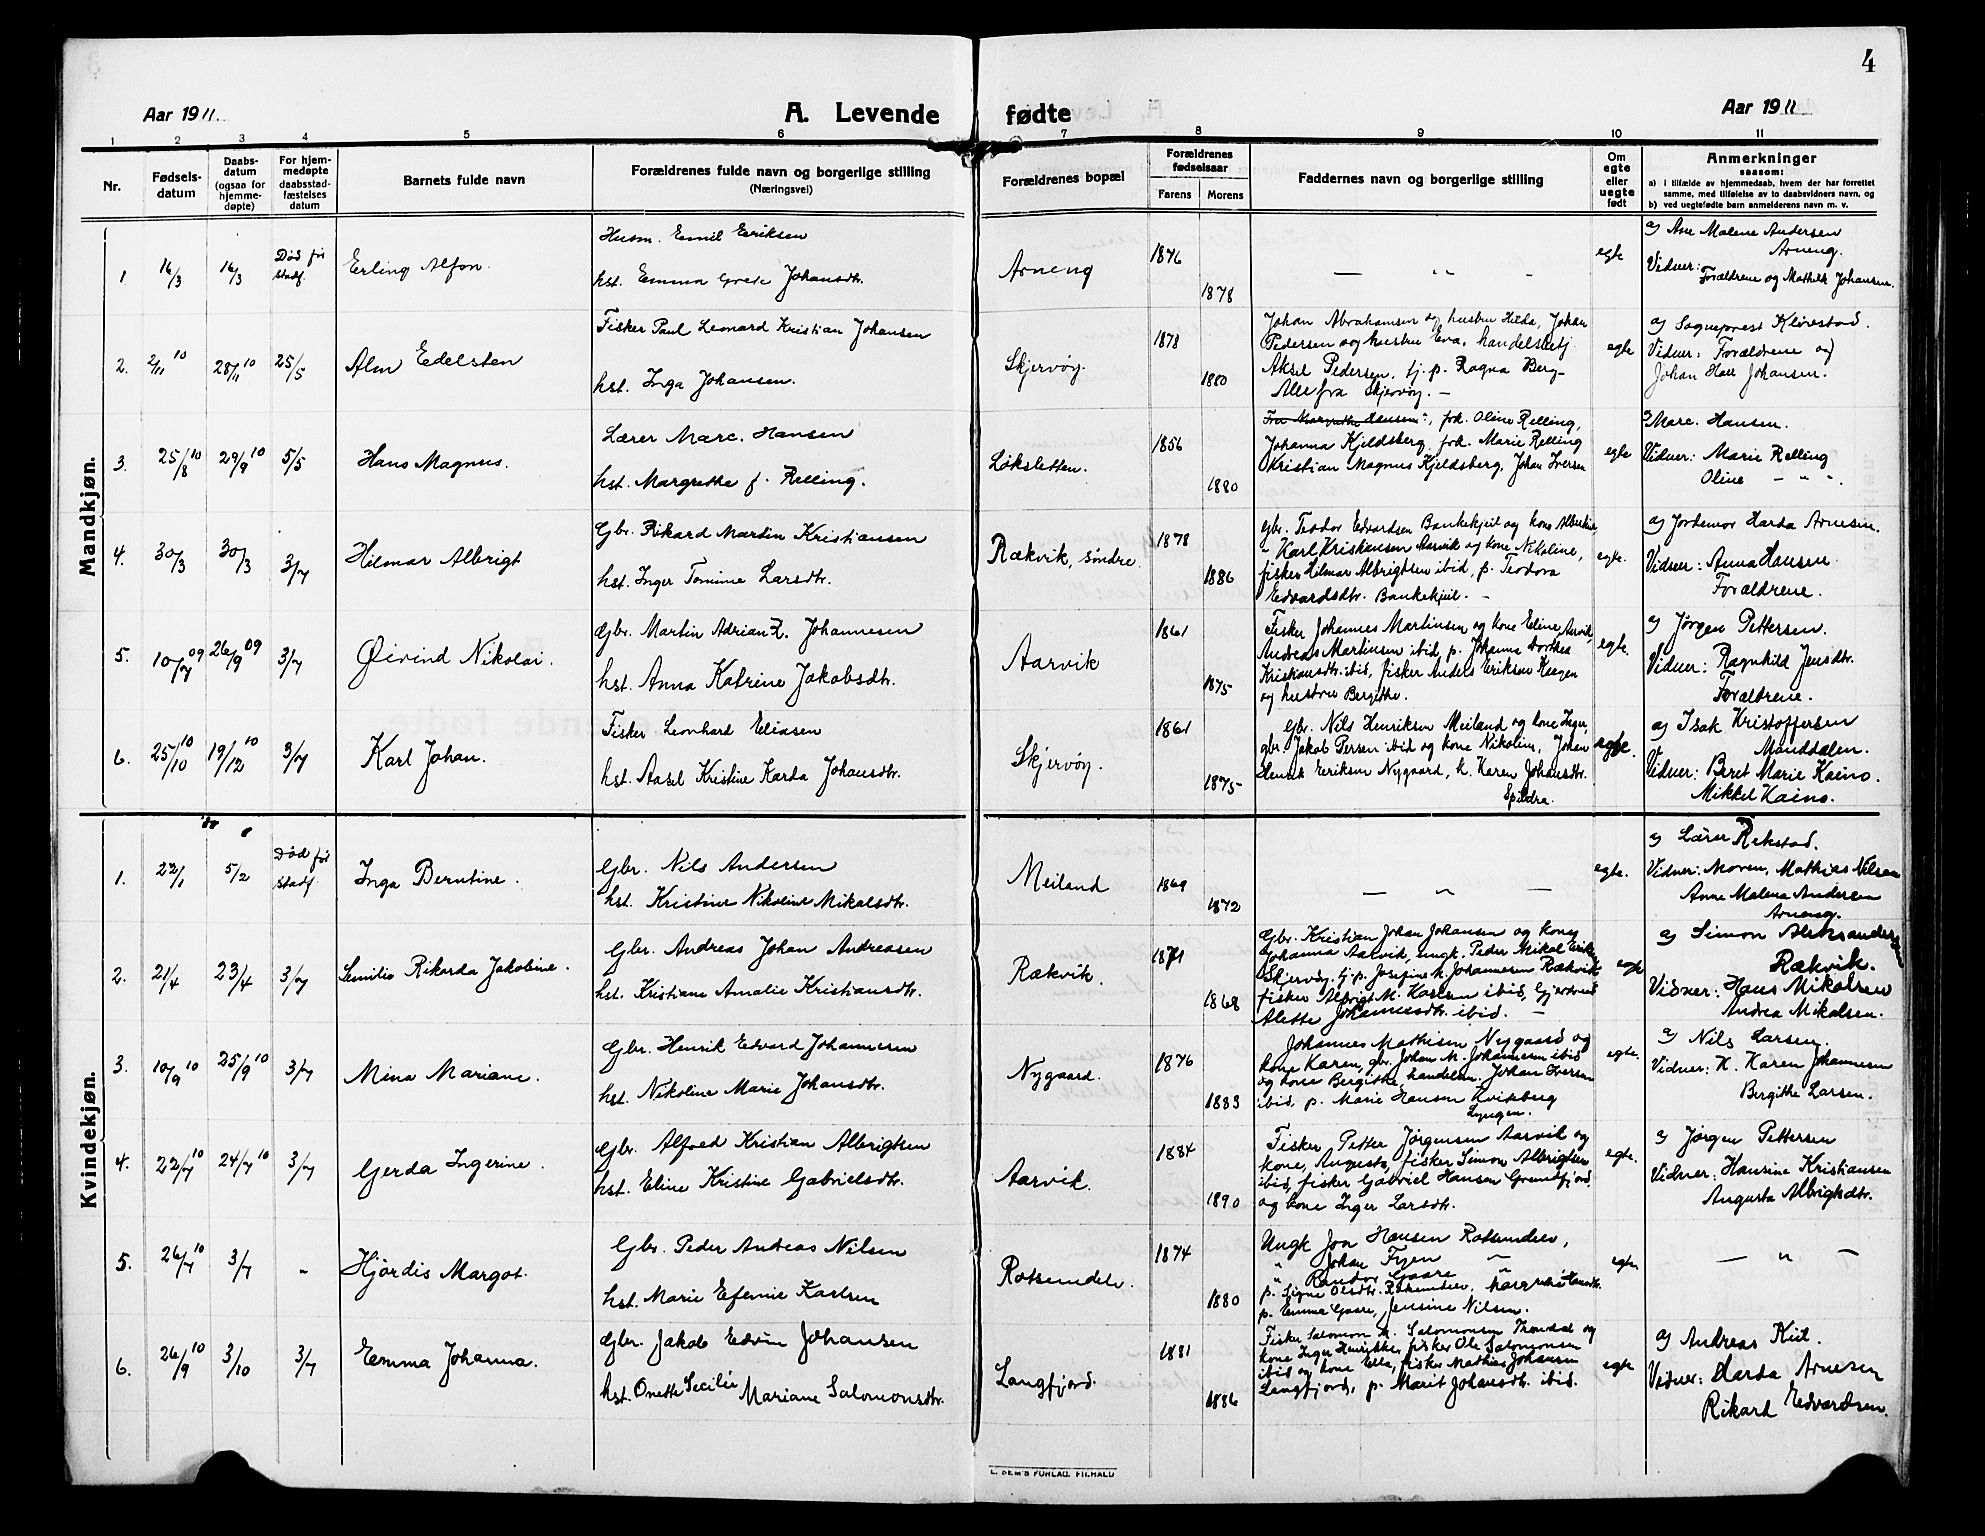 4
Aar 1911
A. Levende fødte
Aar 1911
1 2 3 4 5 6 7 8 9 10 11
Nr.
Fødsels-
datum
Daabs-
datum
(ogsaa for
hjemme-
døpte)
For hjem-
medøpte
daabsstad-
fæstelses
datum
Barnets fulde navn
Forældrenes fulde navn og borgerlige stilling
(Næringsvei)
Forældrenes bopæl
Forældrenes
fødselsaar
Farens Morens
Faddernes navn og borgerlige stilling
Om
egte
eller
uegte
født
Anmerkninger
saasom:
a) i tilfælde av hjemmedaab, hvem der har forrettet
samme, med tilføielse av to daabsvidners navn, og
b) ved uegtefødte barn anmelderens navn m. v.
Mandkjøn.
1 14/3 14/3 Død før
stadf. Erling Alfon.
Husm. Emil Eriksen
hst. Emma Grete Johansdtr.
Arneng 1876 1878
— " -
egte
a) Ane Malene Andersen
Arneng.
Vidner:
Forældrene og Mathilde Johansen.
2. 2/11 10 28/11 10 25/5 Alm Edelsten
Fisker Paul Leonard Kristian Johansen
hst. Inga Johansen.
Skjervøy. 1878 1880
Johan Abrahamsen og hustru Hilda, Johan
Pedersen og hustru Eva, handelsbetj.
Aksel Pedersen, tj. p. Ragna Berg-
Alle fra Skjervøy. —
egte
a) Sogneprest Kløvestad.
Vidner: Forældrene og
Johan Hall Johansen.
3. 25/8 10 29/9 10 5/5 Hans Magnus.
Lærer Marc. Hansen
hst. Margrethe f. Relling.
Løkslettten. 1856 1880
Fru Margrethe Hansen, frk. Oline Relling,
Johanna Kjeldsberg, frk. Marie Relling
Kristian Magnus Kjeldsberg, Johan Iversen
egte
a) Marc. Hansen.
Vidner: Marie Relling
Oline — " .
4. 30/3 30/3 3/7 Hilmar Albrigt
Gbr. Rikard Martin Kristiansen
hst. Inger Tomine Larsdtr.
Rækvik, søndre. 1878 1886
Gbr. Teodor Edvardsen Bankekjeil og kone Albertine,
" Karl Kristiansen Aarvik og kone Nikoline,
fisker Hilmar Albrigtsen ibid, p. Teodora
Edvardsdtr. Bankekjeil. —
egte.
a) Jordemor Harda Arnesen.
Vidner: Anna Hansen.
Forældrene.
5. 10/7 09 26/9 09 3/7 Øivind Nikolai.
Gbr. Martin Adrian Z. Johannesen
hst. Anna Katrine Jakobsdtr.
Aarvik 1861 1875
Fisker Johannes Martinsen og kone Eline, Aarvik
Andreas Martinsen ibid, p. Johanna Dorthea
Kristiansdtr. ibid, fisker Anders Eriksen Haagen
og hustru Bergithe.
egte.
a) Jørgen Pettersen.
Vidner: Ragnhild Jensdtr.
Forældrene.
6. 25/10 10 19/12 10 3/7 Karl Johan.
Fisker Leonhard Eliasen
hst. Aasel Kristine Karda Johansdtr.
Skjervøy. 1861 1875
Gbr. Nils Henriksen Meiland og kone Inger,
gbr. Jakob Persen ibid og kone Nikoline, Johan
Henrik Eriksen Nygaard, k. Karen Johansdtr.
Spildra.
egte.
a) Isak Kristoffersen
Manddalen.
Vidner: Beret Marie Kaino.
Mikkel Kaino.
Kvindekjøn.
1. 22/1 5/2 Død før
stadf. Inga Berntine.
Gbr. Nils Andersen
hst. Kristine Nikoline Mikalsdtr.
Meiland 1869 1872
— " —
egte.
a) Lærer Rekstad.
Vidner: Moren, Mathias Nilsen
Anne Malena Andersen
Arneng.
2. 21/4 23/4 3/7 Semilie Rikarda Jakobine.
Gbr. Andreas Johan Andreasen
hst. Kristiane Amalie Kristiansdtr.
Rækvik. 1871 1868
Gbr. Kristian Johan Johansen og kone
Johanna Aarvik, ungk. Peder Mikal Erik
Skjervøy, tj. p. Josefine M. Johannesen Rækvik
fisker Albrigt M. Karlsen ibid, Gjertrud
Alette Johannesdtr. ibid. —
egte
a) Simon Aleksandersen
Rækvik.
Vidner: Hans Mikalsen
Andrea Mikalsen.
3. 10/9 10 25/9 10 3/7 Mina Mariane.
Gbr. Henrik Edvard Johannesen
hst. Nikoline Marie Johansdtr.
Nygaard. 1876 1883
Johannes Mathisen Nygaard og
kone Karen, gbr. Johan M. Johannesen ibid
og kone Bergithe, handelsm. Johan Iversen
ibid, p. Marie Hansen Kviteberg
Lyngen.
egte.
a) Nils Larsen.
Vidner: K. Karen Johannesen
Bergithe Larsen.
4. 22/7 10 24/7 10 3/7 Gerda Ingerine.
Gbr. Alfred Kristian Albrigtsen
hst. Eline Kristine Gabrielsdtr.
Aarvik. 1884 1890
Fisker Petter Jørgensen Aarvik og
kone, Augusta, fisker Simon Albrigtsen
ibid, fisker Gabriel Hansen Grundfjord,
og kone Inger Larsdtr.
egte.
a) Jørgen Pettersen
Vidner: Hansine Kristiansen
Augusta Albrigtsdtr.
5. 26/7 10 3/7 - Hjørdis Margot.
Gbr. Peder Andreas Nilsen
hst. Marie Efemie Karlsen
Rotsundelv. 1874 1880
Ungk. Jon Hansen Rotsundelv,
" Johan Fyen "
" Randor Gaare "
p. Signe Olsdtr. Rotsundelv, Margrethe Hansdtr.
p. Emma Gaare, Jensine Nilsen.
egte
— " —
6. 26/9 10 3/10 3/7 Emma Johanna.
Gbr. Jakob Edvin Johansen
hst. Onette Secilie Mariane Salomonsdtr.
Langfjord. 1881 1886
Fisker Salomon M. Salomonsen Tromdal og
kone Inger Henrikke, fisker Ole Salomonsen
ibid og kone Ella, fisker Mathias Johansen
Langfjord, p. Marit Johansdtr. ibid.
egte
a) Andreas Kiil.
Vidner: Harda Arnesen
Rikard Edvardsen.